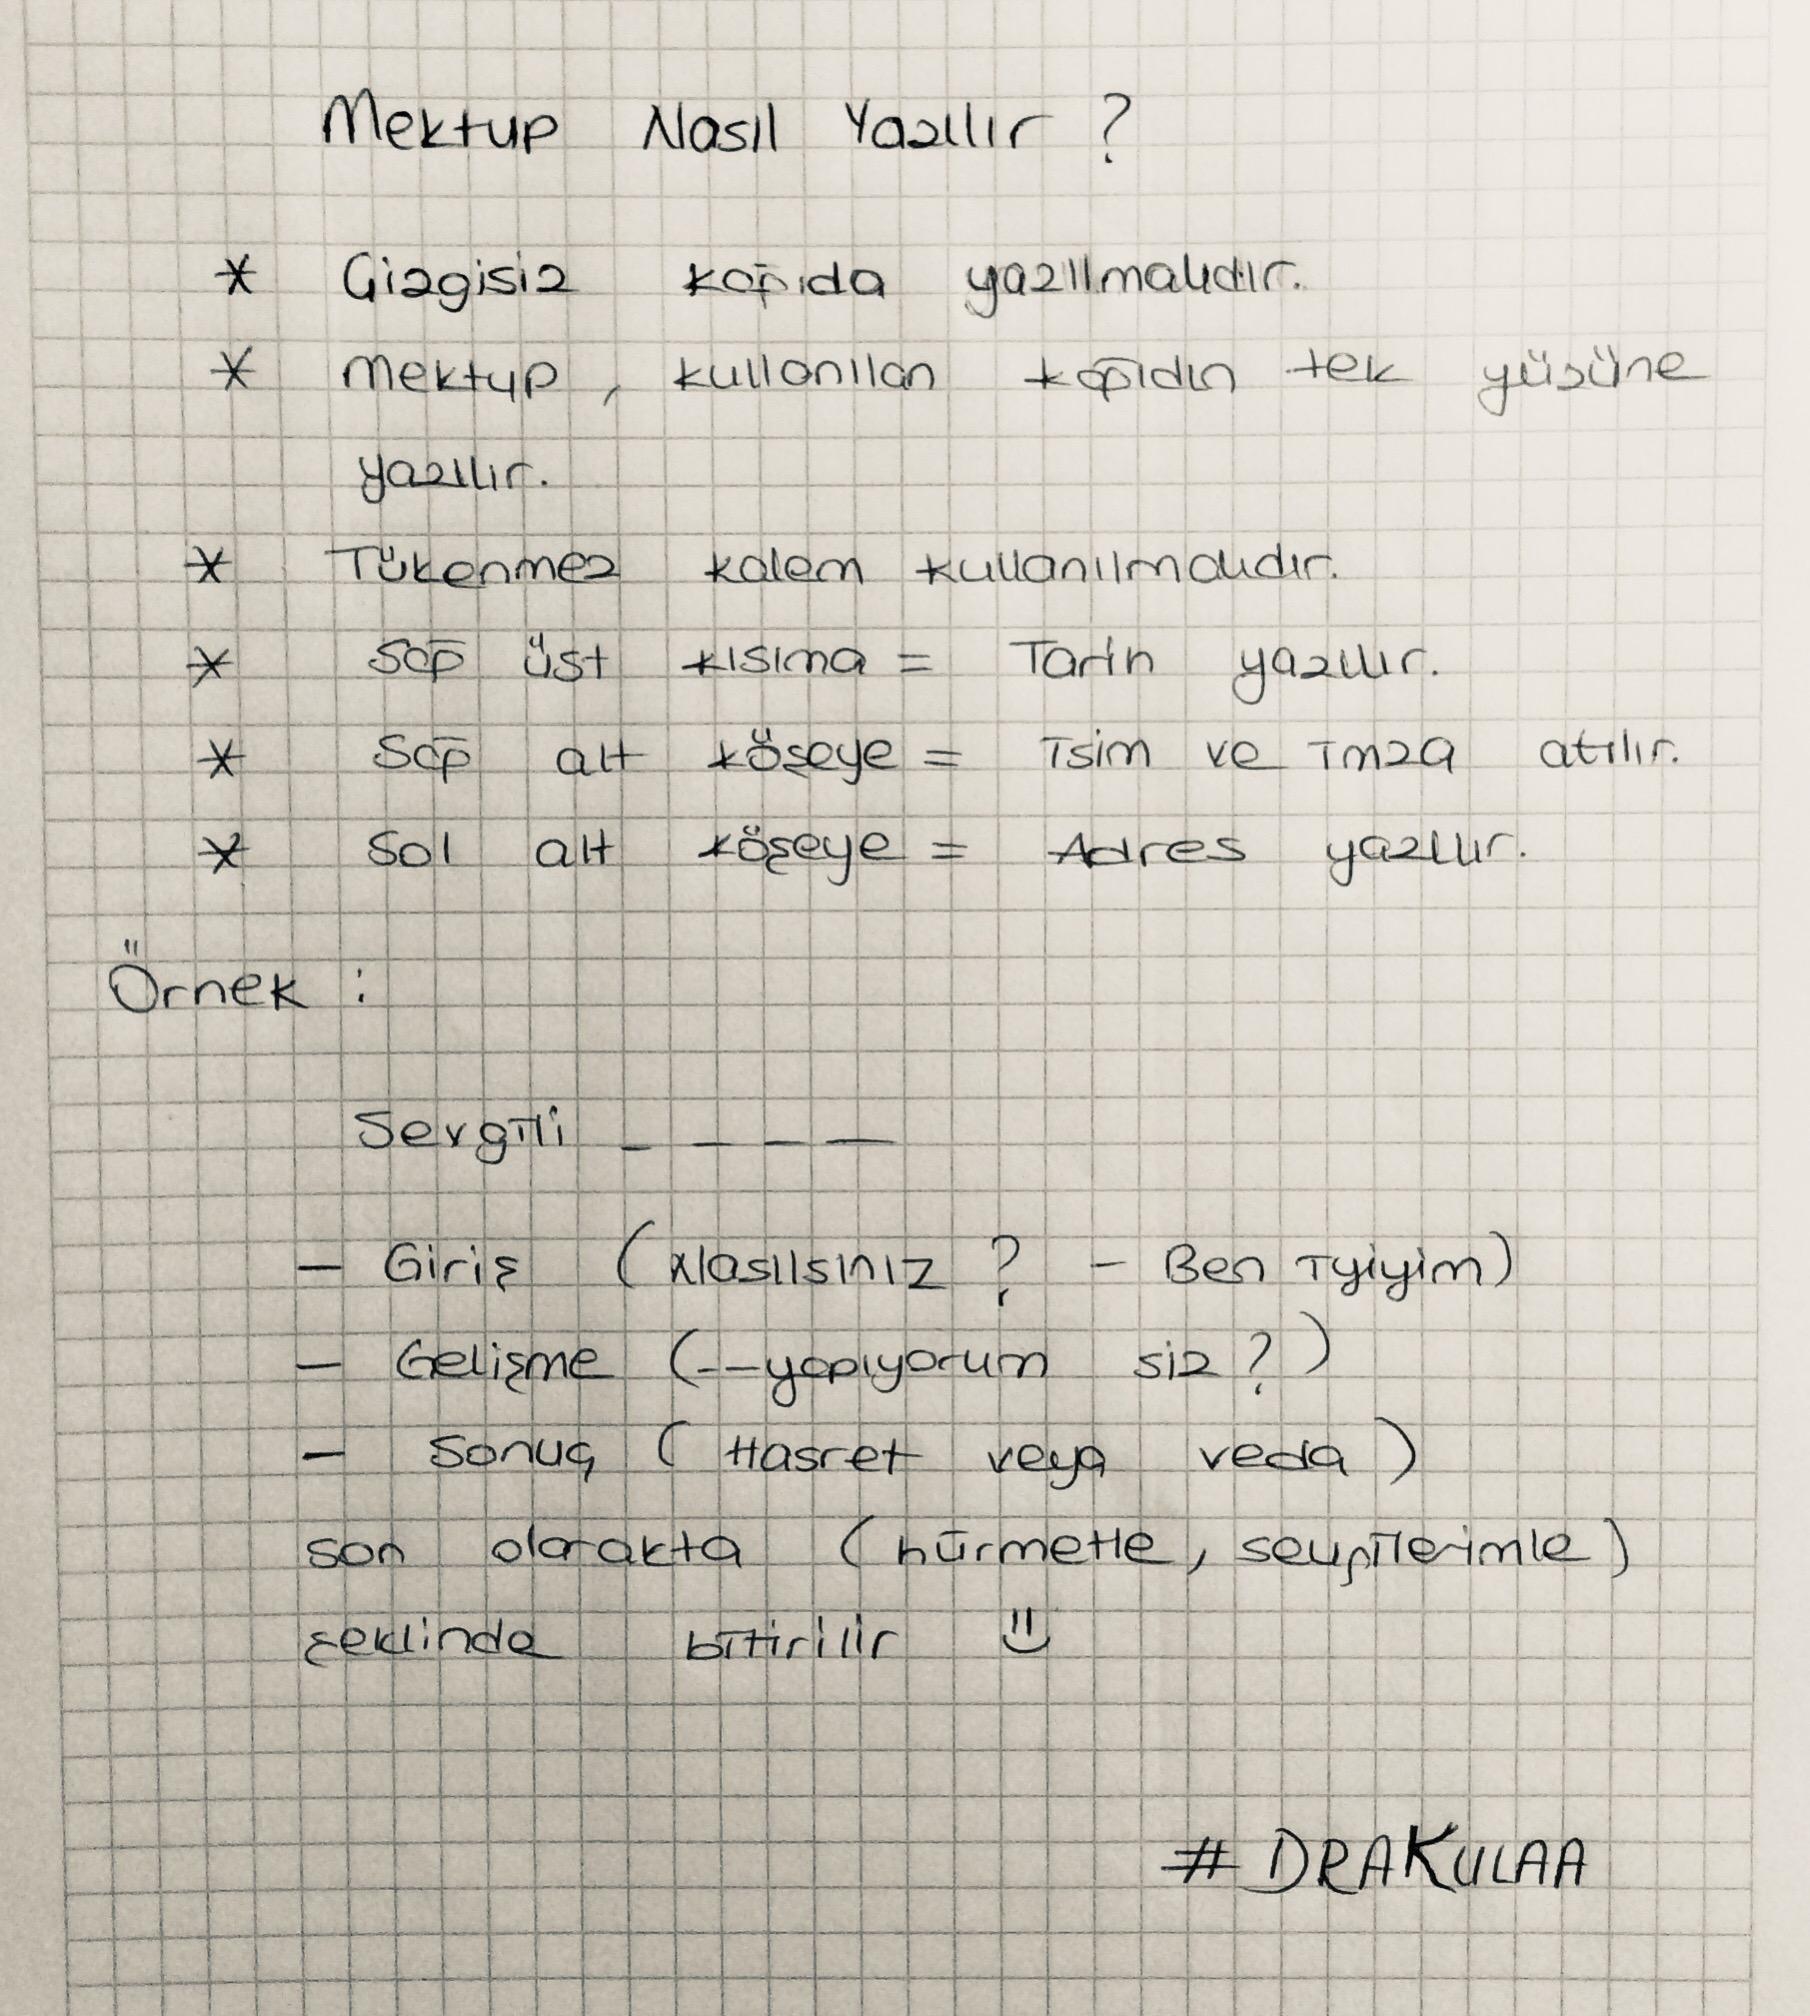 Mektup Nasıl Yazılır ?
* Çizgisiz kağıda yazılmalıdır.
* Mektup, kullanılan kağıdın tek yüzüne
yazılır.
* Tükenmez kalem kullanılmalıdır.
* Sağ üst kısıma = Tarih yazılır.
* Sağ alt köşeye = İsim ve İmza atılır.
* Sol alt köşeye = Adres yazılır.
Örnek :
Sevgili _ _ _ _
- Giriş (Nasılsınız ? - Ben İyiyim)
- Gelişme (--yapıyorum siz ? )
- Sonuç ( Hasret veya veda )
son olarakta ( hürmetle, sevgilerimle )
şeklinde bitirilir :)
# DRAKULAA